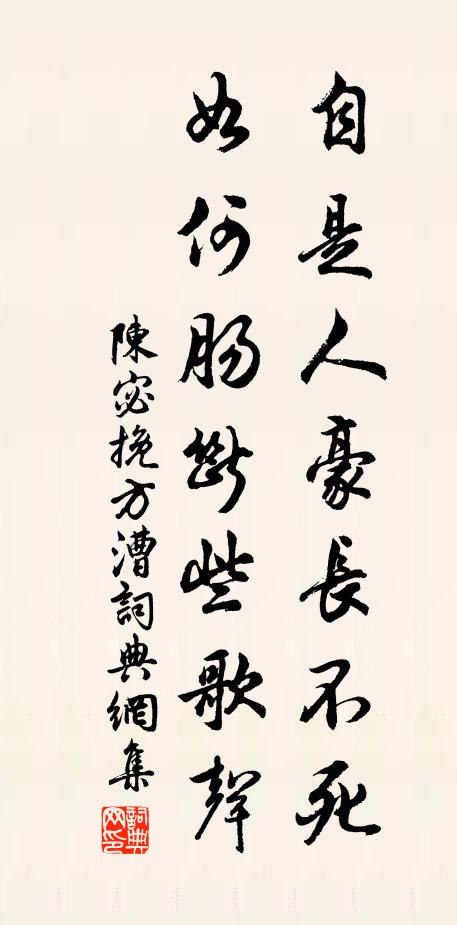 自是人豪長不死
如何腸斷些歌聲
陳宓挽方漕詞典網集
詞典网印